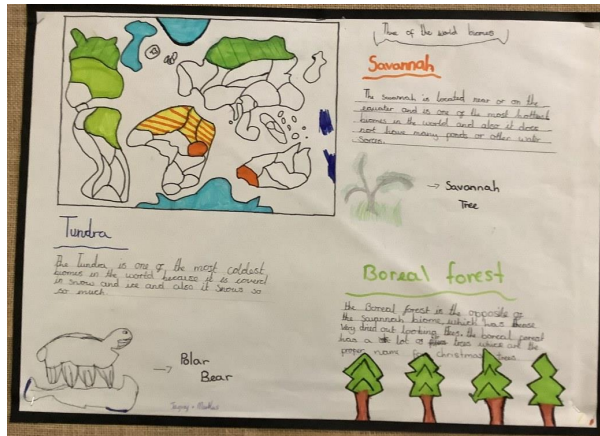 Three of the world biomes
Savannah
The savannah is located near or on the
equator and is one of the most hottest
biomes in the world and also it does
not have many ponds or other water
Savannah
Tree
Tundra
the Tundra is one of the most coldest
biomes in the world because it is coverd
in snow and ice and also it snows so
so much
Polar
Bear
Boreal forest
the Boreal forest is the opposite of
the savannah biome, which has
Very dried out looking trees, the boreal forest
has a lot of trees which are the
proper name for christmas trees